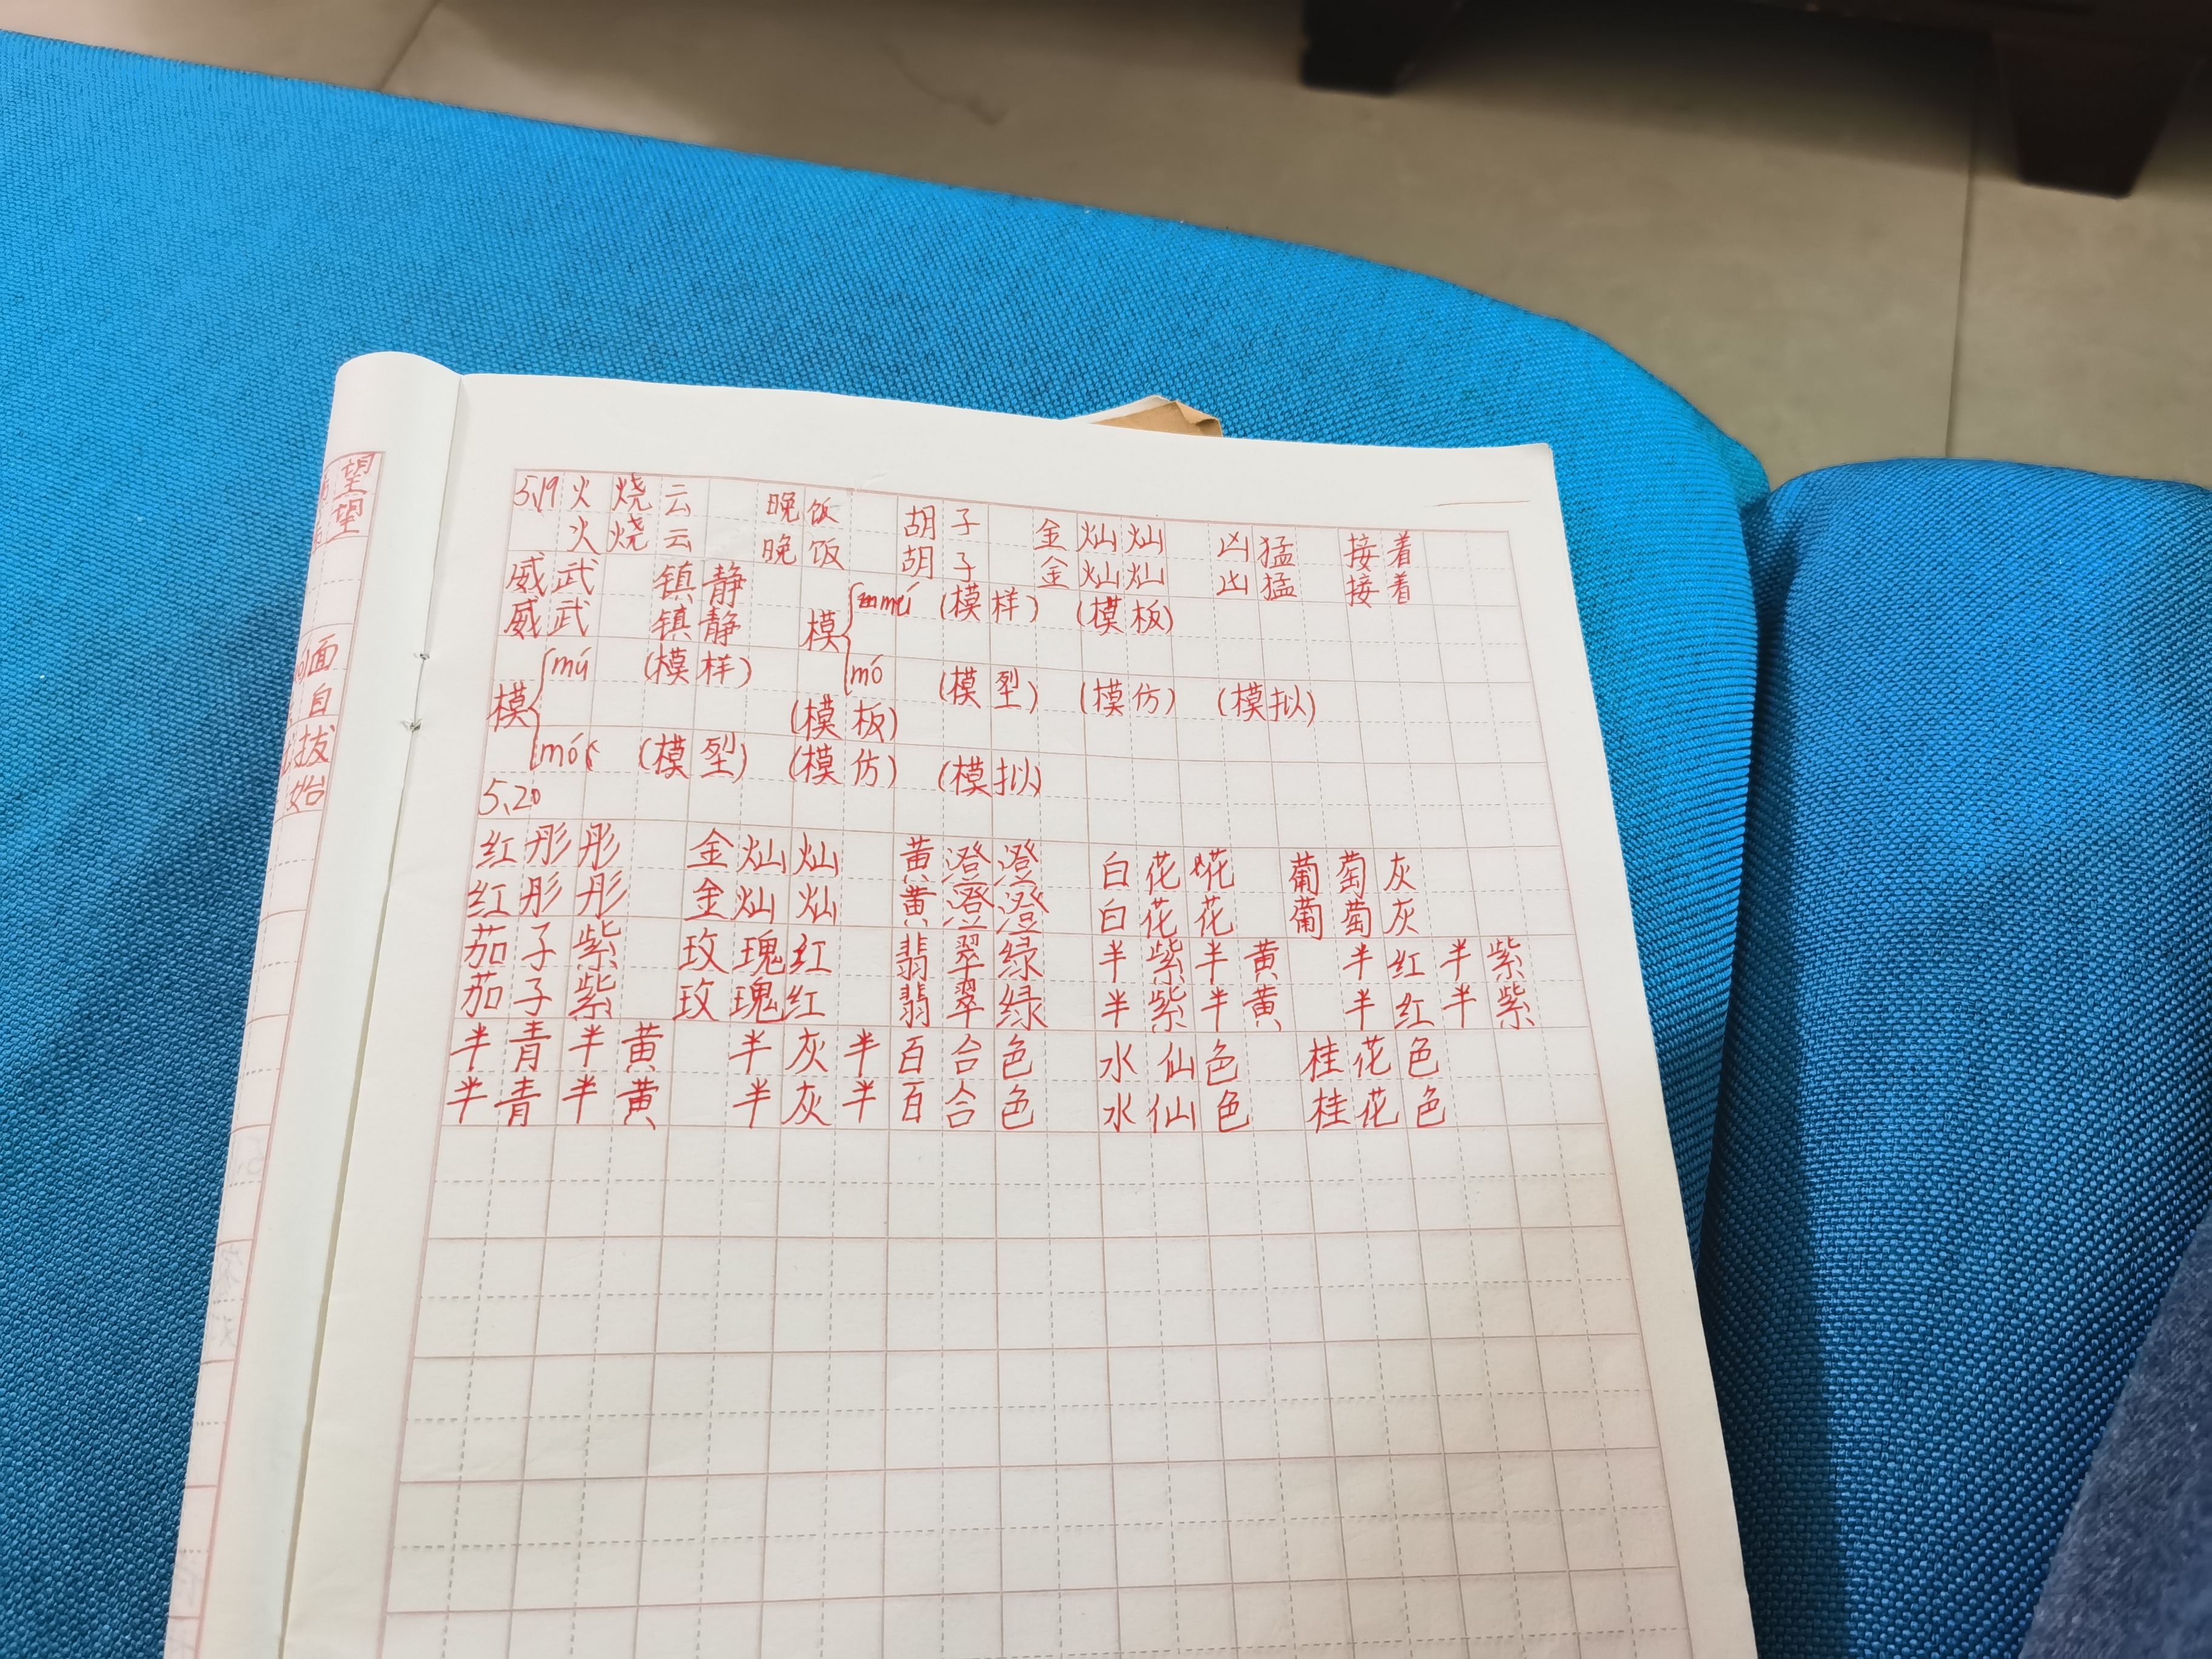 望
望
面
自
拔
始
5.19 火烧云 晚饭 胡子 金灿灿 凶猛 接着
火烧云 晚饭 胡子 金灿灿 凶猛 接着
威武 镇静
威武 镇静 模 mú (模样) (模板)
mó (模型) (模仿) (模拟)
模 mú (模样) (模板)
mó (模型) (模仿) (模拟)
5.20
红彤彤 金灿灿 黄澄澄 白花花 葡萄灰
红彤彤 金灿灿 黄澄澄 白花花 葡萄灰
茄子紫 玫瑰红 翡翠绿 半紫半黄 半红半紫
茄子紫 玫瑰红 翡翠绿 半紫半黄 半红半紫
半青半黄 半灰半百合色 水仙色 桂花色
半青半黄 半灰半百合色 水仙色 桂花色